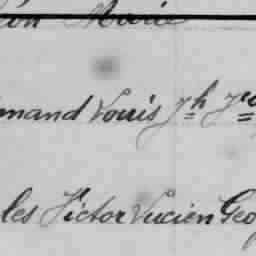 Marie
mand Louis Jh
les Victor Lucien Geo